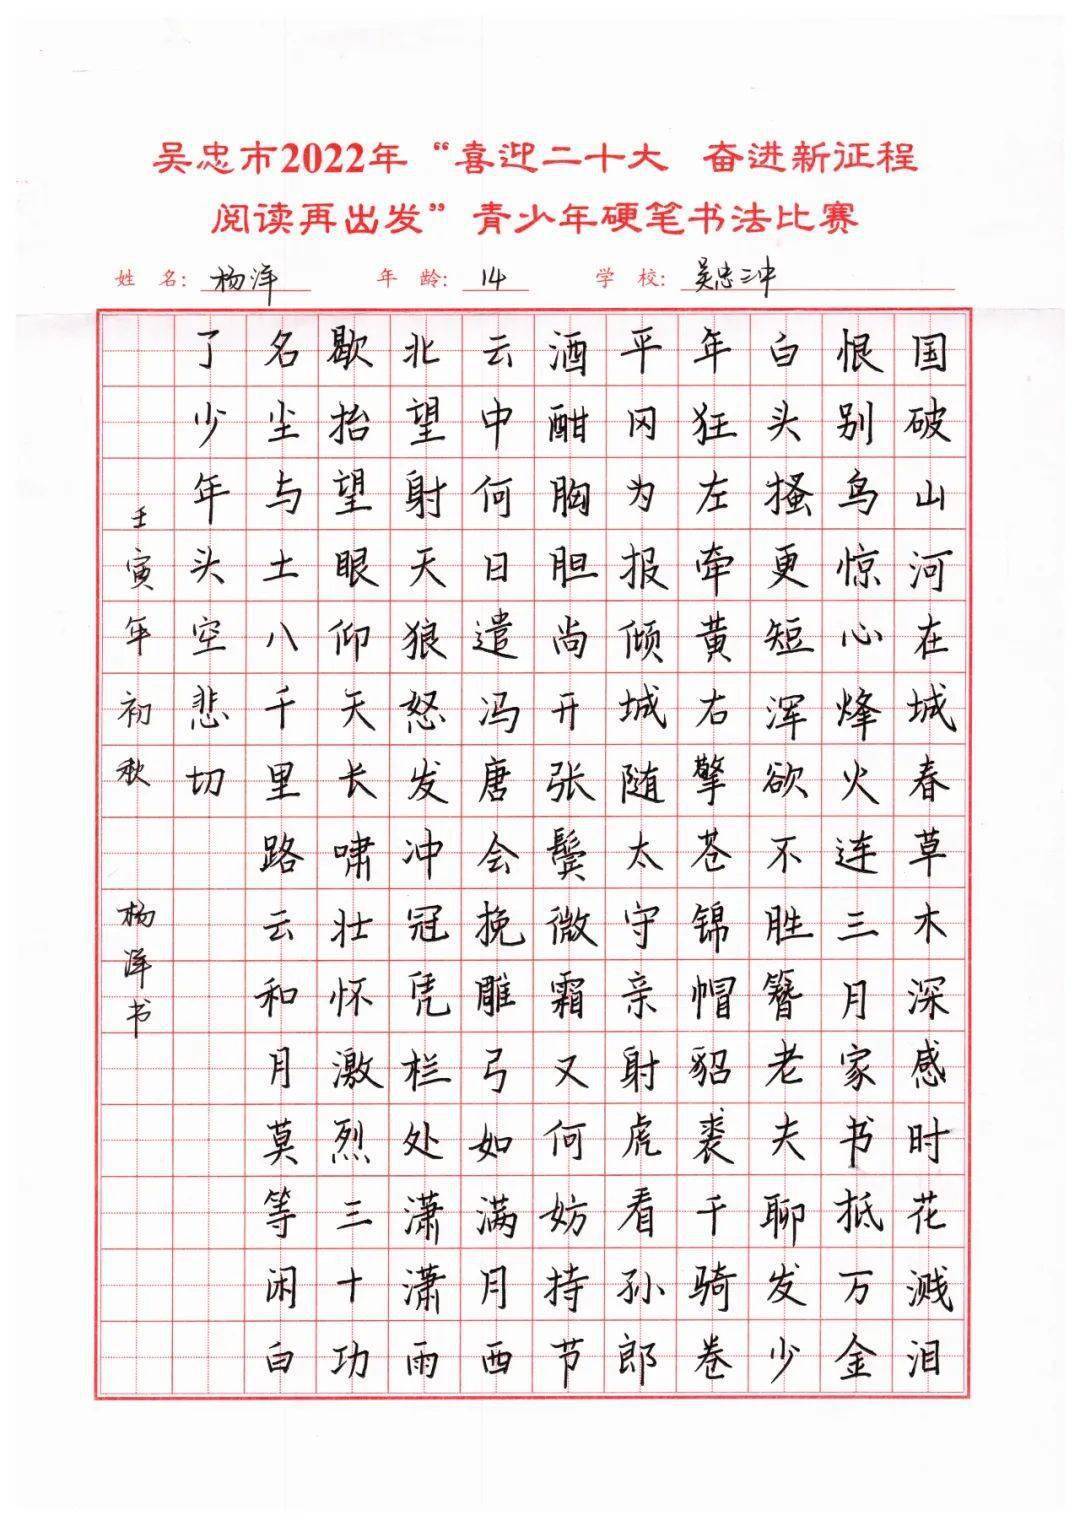 吴忠市2022年“喜迎二十大 奋进新征程
阅读再出发”青少年硬笔书法比赛
姓 名: 杨洋 年 龄: 14 学 校: 吴忠二中
国破山河在城春草木深感时花溅泪
恨别鸟惊心烽火连三月家书抵万金
白头搔更短浑欲不胜簪老夫聊发少
年狂左牵黄右擎苍锦帽貂裘千骑卷
平冈为报倾城随太守亲射虎看孙郎
酒酣胸胆尚开张鬓微霜又何妨持节
云中何日遣冯唐会挽雕弓如满月西
北望射天狼怒发冲冠凭栏处潇潇雨
歇抬望眼仰天长啸壮怀激烈三十功
名尘与土八千里路云和月莫等闲白
了少年头空悲切
壬寅年初秋 杨洋书